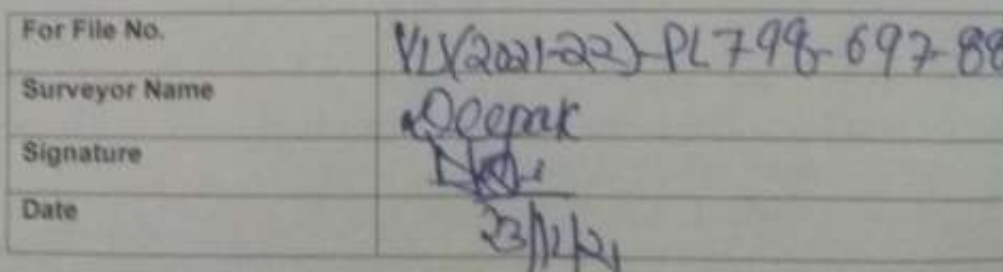 For File No. VL/(2021-22)-PL798-697-88
Surveyor Name Deepak
Signature
Date 23/12/21